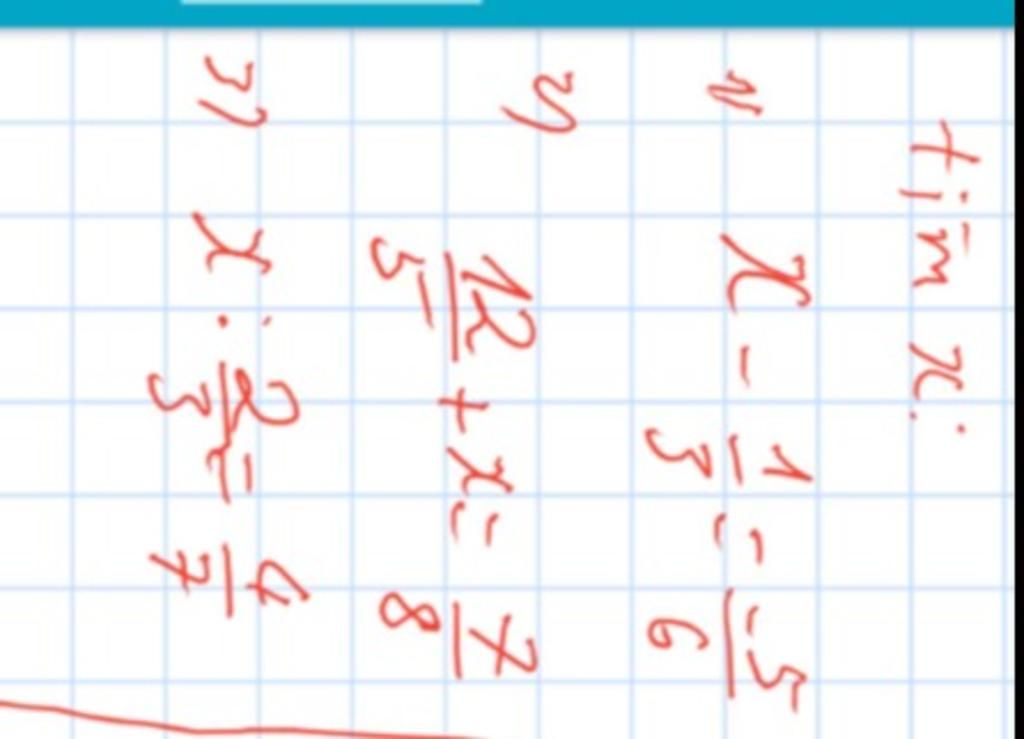 tìm x:
1) x - 1/3 = -5/6
2) 12/5 + x = 7/8
3) x : 2/3 = 4/7